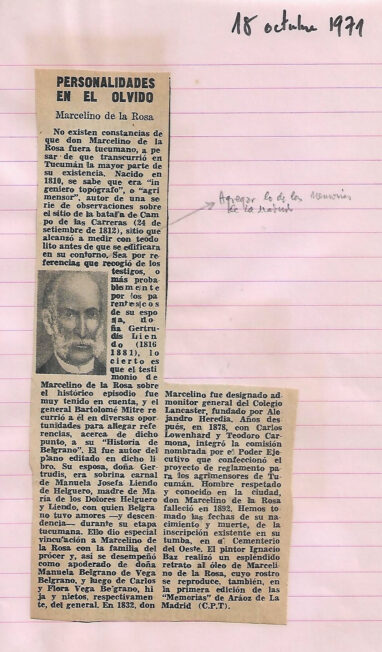 18 octubre 1971
PERSONALIDADES
EN EL OLVIDO
Marcelino de la Rosa
No existen constancias de
que don Marcelino de la
Rosa fuera tucumano, a pe
sar de que transcurrió en
Tucumán la mayor parte de
su existencia. Nacido en
1810, se sabe que era "in
geniero topógrafo", o "agri
mensor", autor de una se
rie de observaciones sobre
el sitio de la batalla de Cam
po de las Carreras (24 de
setiembre de 1812), sitio que
alcanzó a medir con teodo
lito antes de que se edificara
en su contorno. Sea por re
ferencias que recogió de los
testigos, o
más proba
blemente
por los pa
rentescos
de su espo
sa, do
ña Gertru
dis Lien
do (1816
1881), lo
cierto es
que el testi
monio de
Marcelino de la Rosa sobre
el histórico episodio fue
muy tenido en cuenta, y el
general Bartolomé Mitre re
currió a él en diversas opor
tunidades para allegar refe
rencias, acerca de dicho
punto, a su "Historia de
Belgrano". El fue autor del
plano editado en dicho li
bro. Su esposa, doña Ger
trudis, era sobrina carnal
de Manuela Josefa Liendo
de Helguero, madre de Ma
ría de los Dolores Helguero
y Liendo, con quien Belgra
no tuvo amores —y descen
dencia— durante su etapa
tucumana. Ello dio especial
vinculación a Marcelino de
la Rosa con la familia del
prócer y, así se desempeñó
como apoderado de doña
Manuela Belgrano de Vega
Belgrano, y luego de Carlos
y Flora Vega Belgrano, hi
ja y nietos, respectivamen
te, del general. En 1832, don
Marcelino fue designado ad
monitor general del Colegio
Lancaster, fundado por Ale
jandro Heredia. Años des
pués, en 1878, con Carlos
Lowenhard y Teodoro Car
mona, integró la comisión
nombrada por el Poder Eje
cutivo que confeccionó el
proyecto de reglamento pa
ra los agrimensores de Tu
cumán. Hombre respetado
y conocido en la ciudad,
don Marcelino de la Rosa
falleció en 1892. Hemos to
mado las fechas de su na
cimiento y muerte, de la
inscripción existente en su
tumba, en el Cementerio
del Oeste. El pintor Ignacio
Baz realizó un espléndido
retrato al óleo de Marceli
no de la Rosa, cuyo rostro
se reproduce, también, en
la primera edición de las
"Memorias" de Aráoz de La
Madrid (C.P.T).
Agregar lo de las Memorias
de La Madrid